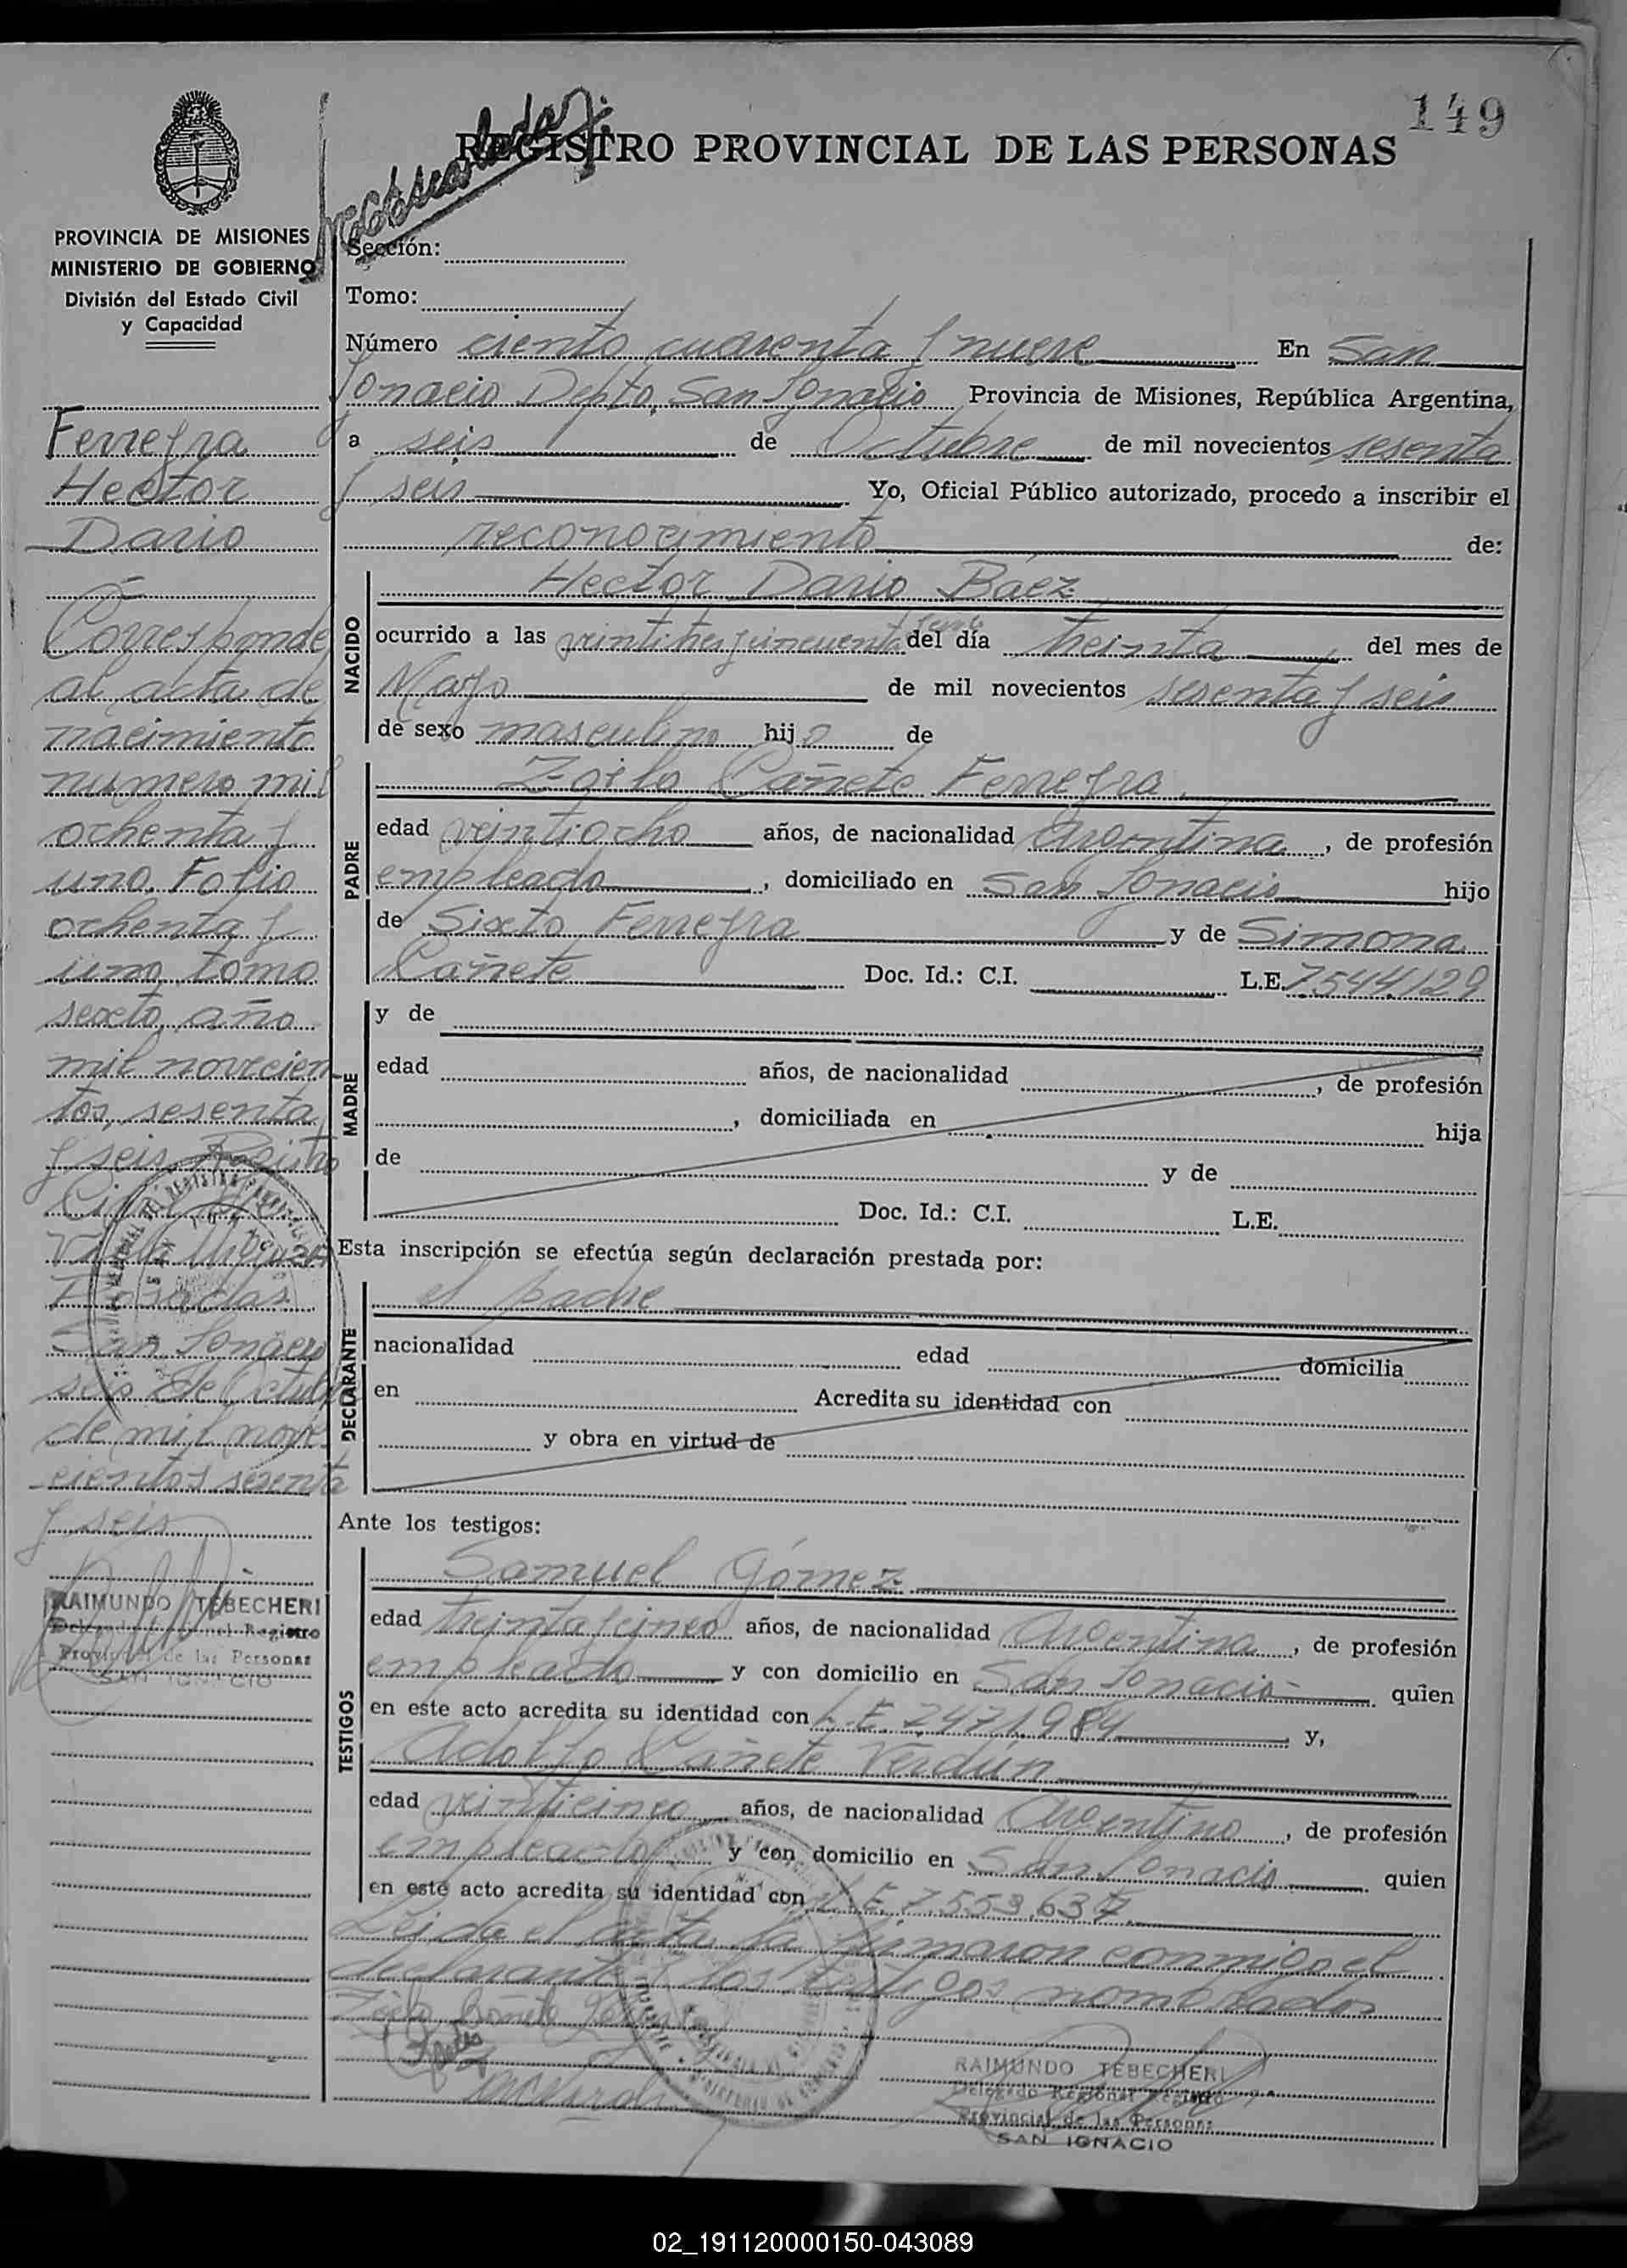 149
REGISTRO PROVINCIAL DE LAS PERSONAS
PROVINCIA DE MISIONES
MINISTERIO DE GOBIERNO
División del Estado Civil
y Capacidad
Ferreyra
Hector
Dario
Corresponde
al acta de
nacimiento
numero mil
ochenta y
uno. Folio
ochenta y
uno, tomo
sexto, año
mil novecien
tos, sesenta
y seis Registro
Posadas
San Ignacio
seis de Octubre
de mil nove
cientos sesenta
y seis
RAIMUNDO TEBECHERI
Delegado Registro
Provincial de las Personas
SAN IGNACIO
Sección:
Tomo:
Número ciento cuarenta y nueve En San
Ignacio Depto. San Ignacio Provincia de Misiones, República Argentina,
a seis de Octubre de mil novecientos sesenta
y seis Yo, Oficial Público autorizado, procedo a inscribir el
reconocimiento de:
NACIDO
Hector Dario Báez
ocurrido a las veintitres y cincuenta del día treinta del mes de
Mayo de mil novecientos sesenta y seis
de sexo masculino hijo de
PADRE
Zoilo Cañete Ferreyra
edad veintiocho años, de nacionalidad Argentina, de profesión
empleado, domiciliado en San Ignacio hijo
de Sixto Ferreyra y de Simona
Cañete Doc. Id.: C.I. L.E. 7.544.129
MADRE
y de
edad años, de nacionalidad , de profesión
, domiciliada en hija
de y de
Doc. Id.: C.I. L.E.
Esta inscripción se efectúa según declaración prestada por:
DECLARANTE
el padre
nacionalidad edad domicilia
en Acredita su identidad con
y obra en virtud de
Ante los testigos:
TESTIGOS
Samuel Gómez
edad treinta y cinco años, de nacionalidad Argentina, de profesión
empleado y con domicilio en San Ignacio quien
en este acto acredita su identidad con L.E. 2.471.984 y,
Adolfo Cañete Verdún
edad veinticinco años, de nacionalidad Argentino, de profesión
empleado y con domicilio en San Ignacio quien
en este acto acredita su identidad con L.E. 7.553.637
Leida el acta la firmaron conmigo el
declarante y los testigos nombrados
Zoilo Cañete
RAIMUNDO TEBECHERI
Delegado Regional Registro
Provincial de las Personas
SAN IGNACIO
02_191120000150-043089